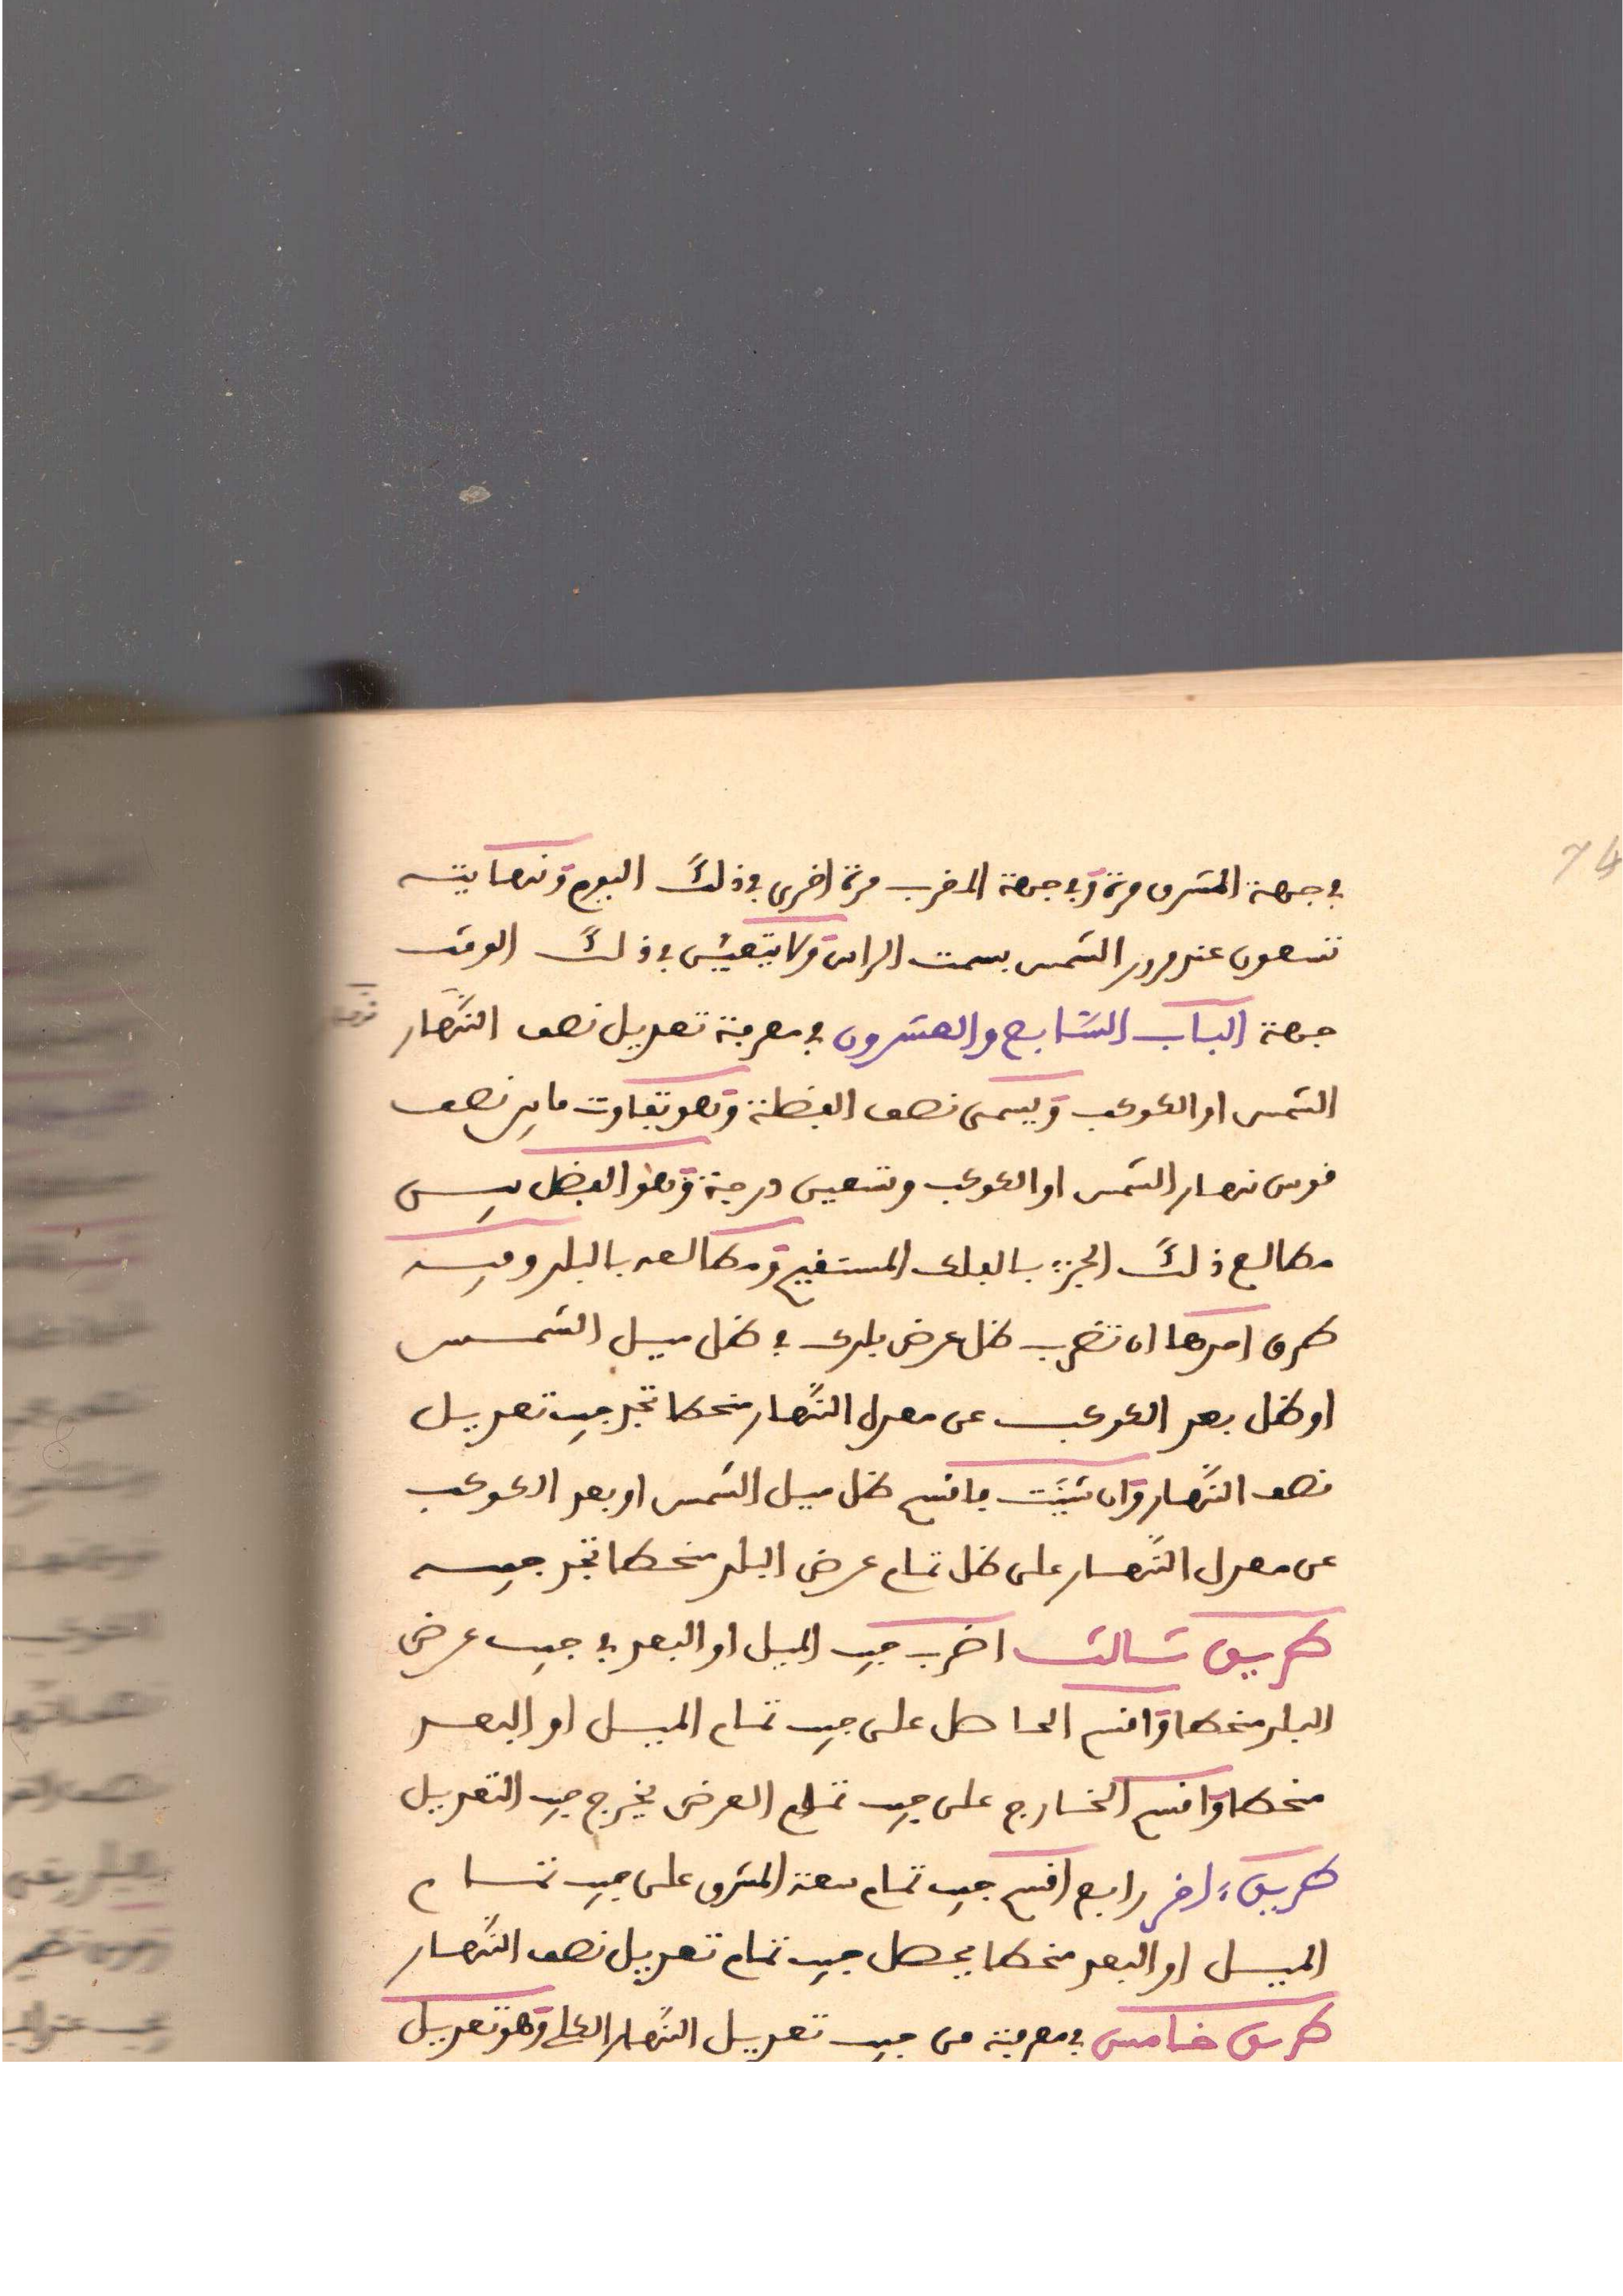 74
في جهة المشرق مرة وفي جهة المغرب مرة اخرى في ذلك اليوم ونهايته
تسعون عند مرور الشمس بسمت الراس ولا يتعين في ذلك الوقت
جهة الباب السابع والعشرون في معرفة تعديل نصف النهار
الشمس او الكوكب ويسمى نصف الفضلة وهو تفاوت ما بين نصف
قوس نهار الشمس او الكوكب وتسعين درجة وهو الفضل بين
مطالع ذلك الجزء بالفلك المستقيم ومطالعه بالبلد وفيه
طرق احدها ان تضرب ظل عرض بلدك في ظل ميل الشمس
او ظل بعد الكوكب عن معدل النهار منحطا تجد جيب تعديل
نصف النهار وان شئت فاقسم ظل ميل الشمس او بعد الكوكب
عن معدل النهار على ظل تمام عرض البلد منحطا تجد جيبه
طريق ثالث اضرب جيب الميل او البعد في جيب عرض
البلد منحطا واقسم الحاصل على جيب تمام الميل او البعد
منحطا واقسم الخارج على جيب تمام العرض يخرج جيب التعديل
طريق ءاخر رابع اقسم جيب تمام سعة المشرق على جيب تمام
الميل او البعد منحطا يحصل جيب تمام تعديل نصف النهار
طريق خامس في معرفة من جيب تعديل النهار الكلي وهو تعديل